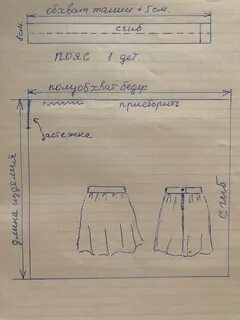 обхват талии + 5см.
8см.
сгиб
пояс 1 дет.
полуобхват бедер
присборить
застежка
длина изделия
сгиб